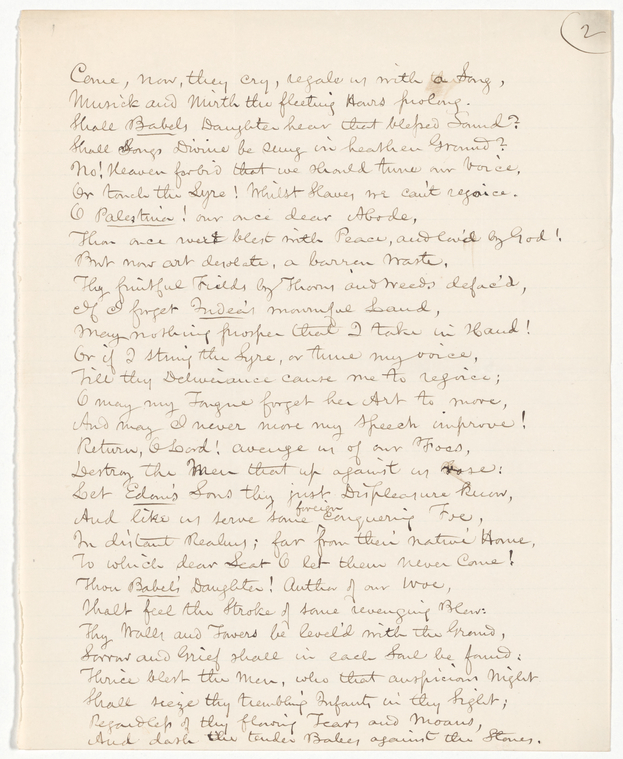 2
Come, now, they cry, regale us with a Song,
Musick and Mirth the fleeting Hours prolong.
Shall Babels Daughter hear that blessed Sound?
Shall Songs Divine be sung in heathen Ground?
No! Heaven forbid that we should tune our Voice,
Or touch the Lyre! Whilst Slaves we can't rejoice.
O Palestina! our once dear Abode,
Thou once wert blest with Peace, and lov'd by God!
But now art desolate, a barren Waste,
Thy fruitful Fields by Thorns and Weeds defac'd,
If I forget Judea's mournful Land,
May nothing prosper that I take in Hand!
Or if I string the Lyre, or tune my voice,
Till thy Deliverance cause me to rejoice;
O may my Tongue forget her Art to move,
And may I never more my Speech improve!
Return, O Lord! avenge us of our Foes,
Destroy the Men that up against us rose:
Let Edom's Sons thy just Displeasure know,
And like us serve some foreign Conquering Foe,
In distant Realms; far from their native Home,
To which dear Seat O let them never Come!
Thou Babel's Daughter! Author of our Woe,
Shalt feel the Stroke of some revenging Blow:
Thy Walls and Towers be level'd with the Ground,
Sorrow and Grief shall in each Soul be found:
Thrice blest the Men, who that auspicious Night
Shall seize thy trembling Infants in thy Sight;
Regardless of thy flowing Tears and Moans,
And dash the tender Babes against the Stones.